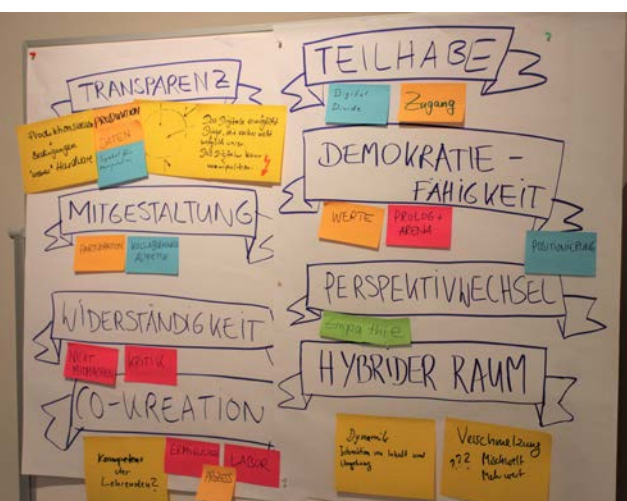 ?
TRANSPARENZ
Produktionsweise
+
Bedingungen
Hardware
PRODUKTION
DATEN
Das Digitale ermöglicht
Dinge, die vorher nicht
möglich waren.
Das Digitale kann
manipulieren.
MITGESTALTUNG
PARTIZIPATION
WIDERSTÄNDIGKEIT
NICHT
MITMACHEN
KRITIK
CO-KREATION
Kompetenz
der
Lehrenden?
LABOR
PROZESS
?
TEILHABE
Digital
Divide
Zugang
DEMOKRATIE-
FÄHIGKEIT
WERTE
PROLOG +
ARENA
POSITIONIERUNG
PERSPEKTIVWECHSEL
Empathie
HYBRIDER RAUM
Dynamik
Interaktion von Inhalt und
Umgebung
Verschmelzung
??? Mischwelt
Mehrwert